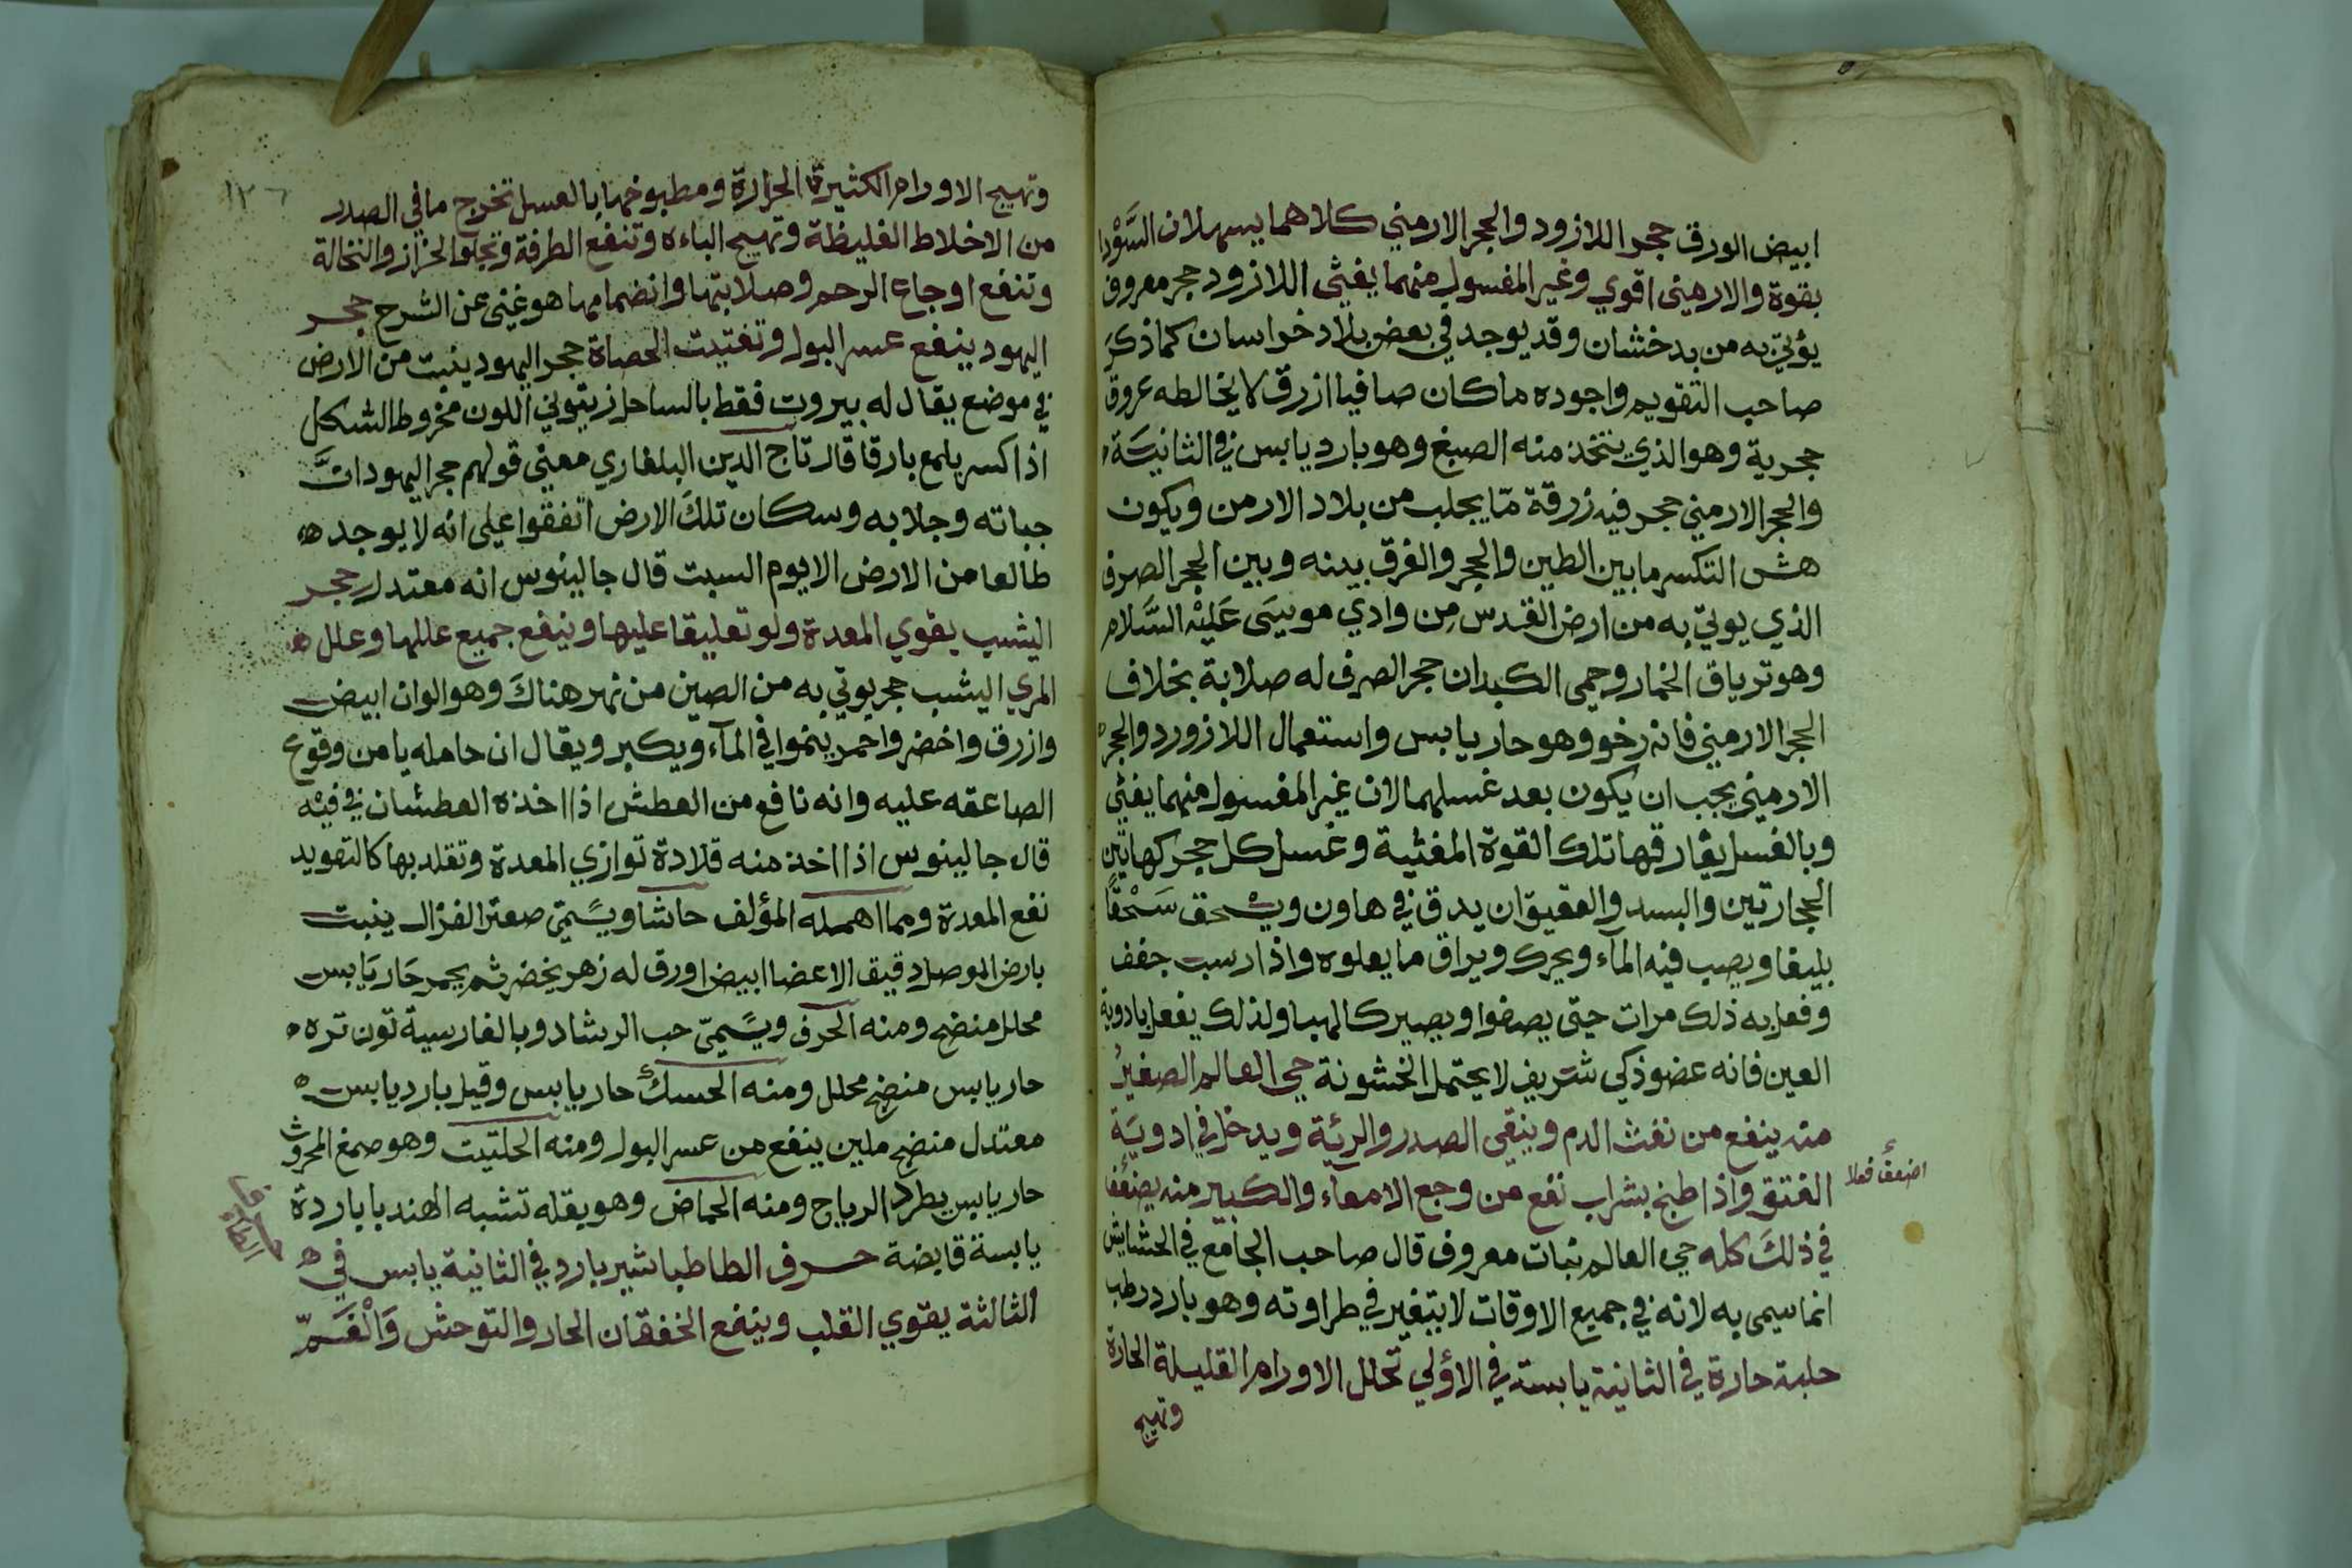 ابيض الورق حجر اللازورد والحجر الارمني كلاهما يسهلان السَّوْدا
بقوة والارمني اقوي وغير المغسول منهما يغثى اللازورد حجر معروف
يؤتي به من بدخشان وقد يوجد في بعض بلاد خراسان كما ذكرَ
صاحب التقويم واجوده ما كان صافيا ازرق لا يخالطه عروق
حجرية وهو الذي يتخذ منه الصبغ وهو بارد يابس في الثانيَة
والحجر الارمني حجر فيه زرقة مّا يجلب من بلاد الارمن ويكون
هش التكسر ما بين الطين والحجر والفرق بينه وبين الحجر الصرف
الذي يوتي به من ارض القدس مِن وادي موسَى عَليْه السَّلام
وهو ترياق الخمار وحمى الكبدان حجر الصرف له صلابة بخلاف
الحجر الارمني فانه رخو وهو حار يابس واستعمال اللازورد والحجر
الارمني يجب ان يكون بعد غسلهما لان غير المغسول منهما يغثي
وبالغسل يفارقها تلك القوة المغثية وغسل كل حجر كهاتين
الحجارتين والبسد والعقيق ان يدق في هاون ويسْحق سَحْقًا
بليغا ويصب فيه المآء ويحرك ويراق ما يعلوه واذا رسبت جفف
وفعل به ذلك مرات حتى يصفوا ويصير كالهبا ولذلك يفعل بادوية
العين فانه عضو ذكي شريف لا يحتمل الخشونة حي العالم الصغيرُ
منه ينفع من نفث الدم وينقي الصدر والرئة ويدخل في ادويَة
الفتق واذا طبخ بشراب نفع من وجع الامعآء والكبير منه
اضعف فعلا
في ذلكَ كله حي العالم نبات معروف قال صاحب الجامع في الحشايش
انما سمى به لانه في جميع الاوقات لا يتغير في طراوته وهو بارد رطب
حلبة حارة في الثانية يابسة في الاولي تحلل الاورام القليلة الحارة
وتهيج
١٢٦
وتهيج الاورام الكثيرة الحرارة ومطبوخها بالعسل تخرج ما في الصدر
من الاخلاط الغليظة وتهيج الباءه وتنفع الطرفة وتجلو الحزاز والنخالة
وتنفع اوجاع الرحم وصلابتها وانضمامها هو غني عن الشرح حجر
اليهود ينفع عسر البول وتفتيت الحصاة حجر اليهود ينبت من الارض
في موضع يقال له بيروت فقط بالساحل زيتوني اللون مخروط الشكل
اذا كسر يلمع بارقا قال تاج الدين البلغاري معني قولهم حجر اليهود انَّ
جباته وجلابه وسكان تلكَ الارض اتفقوا علي انه لا يوجد
طالعا من الارض الا يوم السبت قال جالينوس انه معتدل حجر
اليشب يقوي المعدة ولو تعليقا عليها وينفع جميع عللها وعلل
المري اليشب حجر يوتي به من الصين من نهر هناكَ وهو الوان ابيض
وازرق واخضر واحمر ينموا في المآء ويكبر ويقال ان حامله يامن وقوع
الصاعقه عليه وانه نافع من العطش اذا اخذه العطشان في فيْه
قال جالينوس اذا اخذ منه قلادة توازي المعدة وتقلد بها كالتعويد
نفع المعدة ومما اهمله المؤلف حاشا ويسَمّى صعتر الغزال ينبت
بارض الموصل دقيق الاعضا ابيض اورق له زهر يخضر ثم يحمر حَار يَابس
محلل منضج ومنه الحرف ويسَمّى حب الرشاد وبالفارسية تون تره
حار يابس منضج محلل ومنه الحسك حار يابس وقيل بارد يابس
معتدل منضج ملين ينفع من عسر البول ومنه الحلتيت وهو صمغ المحروث
حار يابس يطرد الرياح ومنه الحماض وهو بقله تشبه الهندبا باردة
يابسة قابضة حرف الطا طباشير بارد في الثانية يابس في
حرف الطا
الثالثة يقوي القلب وينفع الخفقان الحار والتوحش وَالْغَمّ